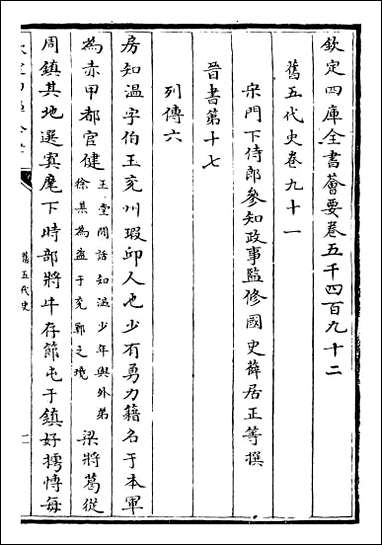 欽定四庫全書薈要卷五千四百九十二
舊五代史卷九十一
宋門下侍郎參知政事監修國史薛居正等撰
晉書第十七
列傳六
房知溫字伯玉兗州瑕邱人也少有勇力籍名于本軍
為赤甲都官健
王堂閒話知溫少年與外弟
徐某為盗于兗鄆之境
梁將葛從
周鎮其地選寘麾下時部將牛存節屯于鎮好摴愽每
舊五代史
一